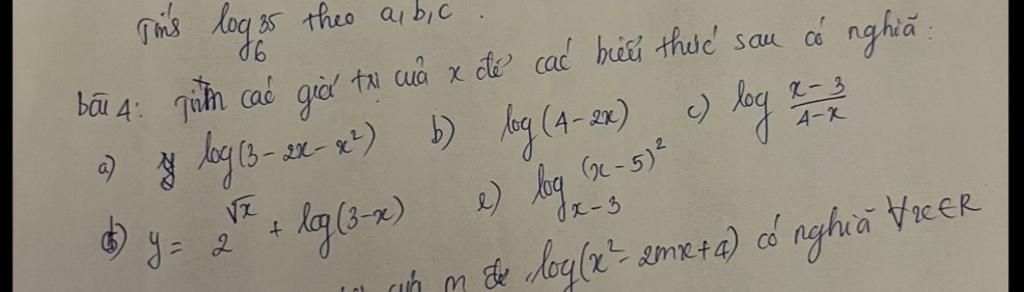 Tính log_6 35 theo a, b, c.
bài 4: Tìm các giá trị của x để các biểu thức sau có nghĩa:
a) log(3 - 2x - x²) b) log(4 - 2x) c) log \frac{x - 3}{4 - x}
d) y = 2^{√x} + log(3 - x) e) log_{x - 3} (x - 5)²
m để log(x² - 2mx + 4) có nghĩa ∀x∈R